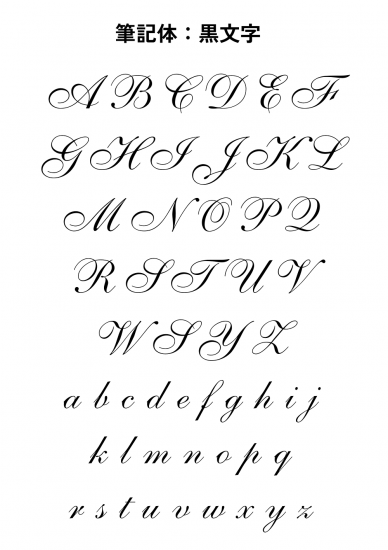 筆記体：黒文字
A B C D E F
G H I J K L
M N O P Q
R S T U V
W S Y Z
a b c d e f g h i j
k l m n o p q
r s t u v w x y z